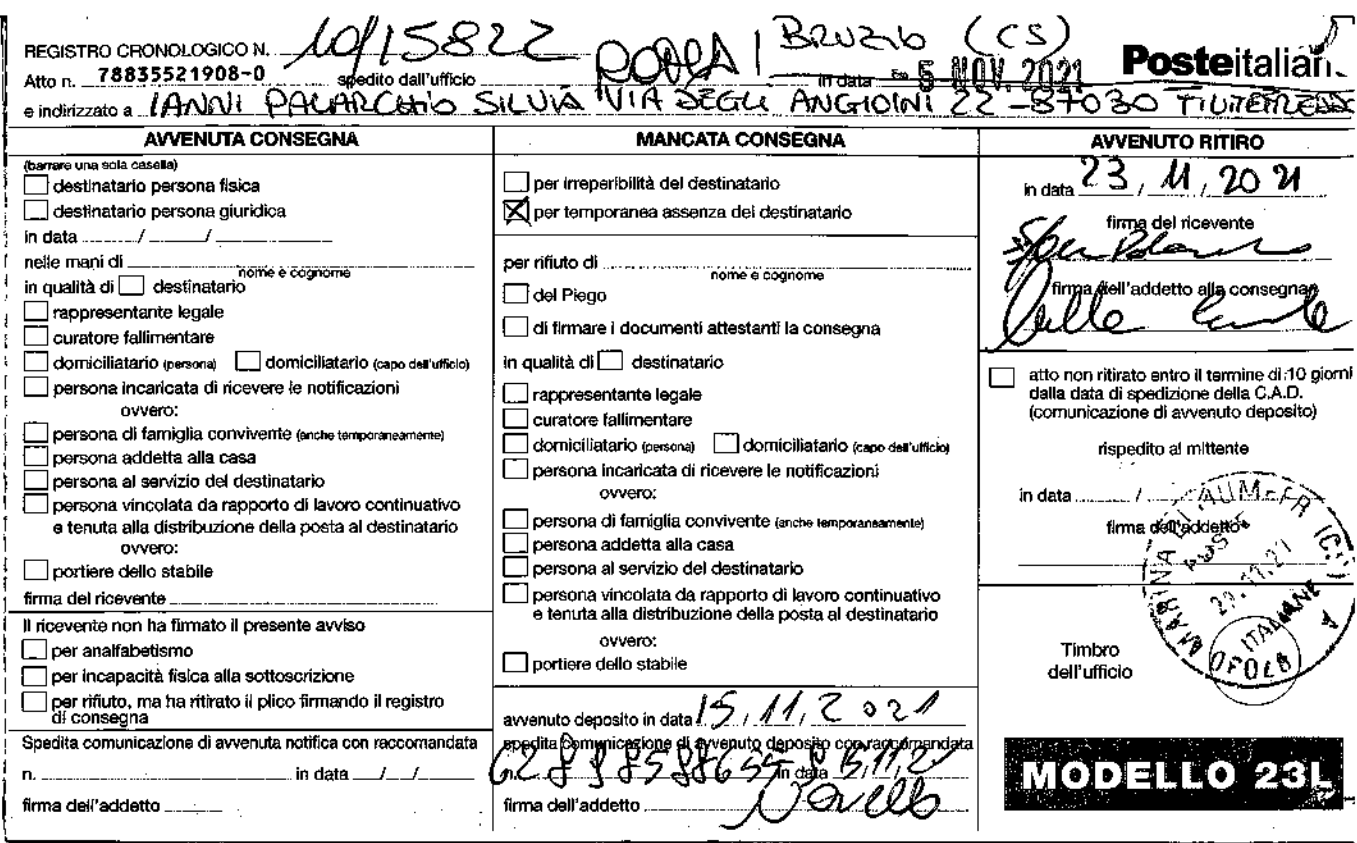 REGISTRO CRONOLOGICO N. 10/15822 BRUZIO (CS) Posteitalian
Atto n. 78835521908-0 spedito dall'ufficio ROMA 1 in data 5 NOV. 2021
e indirizzato a IANNI PALARCHIO SILVIA VIA DEGLI ANGIOINI 22 - 87030
AVVENUTA CONSEGNA
(barrare una sola casella)
destinatario persona fisica
destinatario persona giuridica
in data / /
nelle mani di
nome e cognome
in qualità di destinatario
rappresentante legale
curatore fallimentare
domiciliatario (persona) domiciliatario (capo dell'ufficio)
persona incaricata di ricevere le notificazioni
ovvero:
persona di famiglia convivente (anche temporaneamente)
persona addetta alla casa
persona al servizio del destinatario
persona vincolata da rapporto di lavoro continuativo
e tenuta alla distribuzione della posta al destinatario
ovvero:
portiere dello stabile
firma del ricevente
Il ricevente non ha firmato il presente avviso
per analfabetismo
per incapacità fisica alla sottoscrizione
per rifiuto, ma ha ritirato il plico firmando il registro
di consegna
Spedita comunicazione di avvenuta notifica con raccomandata
n. in data / /
firma dell'addetto
MANCATA CONSEGNA
per irreperibilità del destinatario
per temporanea assenza del destinatario
per rifiuto di
nome e cognome
del Piego
di firmare i documenti attestanti la consegna
in qualità di destinatario
rappresentante legale
curatore fallimentare
domiciliatario (persona) domiciliatario (capo dell'ufficio)
persona incaricata di ricevere le notificazioni
ovvero:
persona di famiglia convivente (anche temporaneamente)
persona addetta alla casa
persona al servizio del destinatario
persona vincolata da rapporto di lavoro continuativo
e tenuta alla distribuzione della posta al destinatario
ovvero:
portiere dello stabile
avvenuto deposito in data 15,11,2021
spedita comunicazione di avvenuto deposito con raccomandata
n. in data 15,11,21
firma dell'addetto
AVVENUTO RITIRO
in data 23, 11, 2021
firma del ricevente
firma dell'addetto alla consegna
atto non ritirato entro il termine di 10 giorni
dalla data di spedizione della C.A.D.
(comunicazione di avvenuto deposito)
rispedito al mittente
in data /
firma dell'addetto
POSTE ITALIANE
Timbro
dell'ufficio
MODELLO 23L